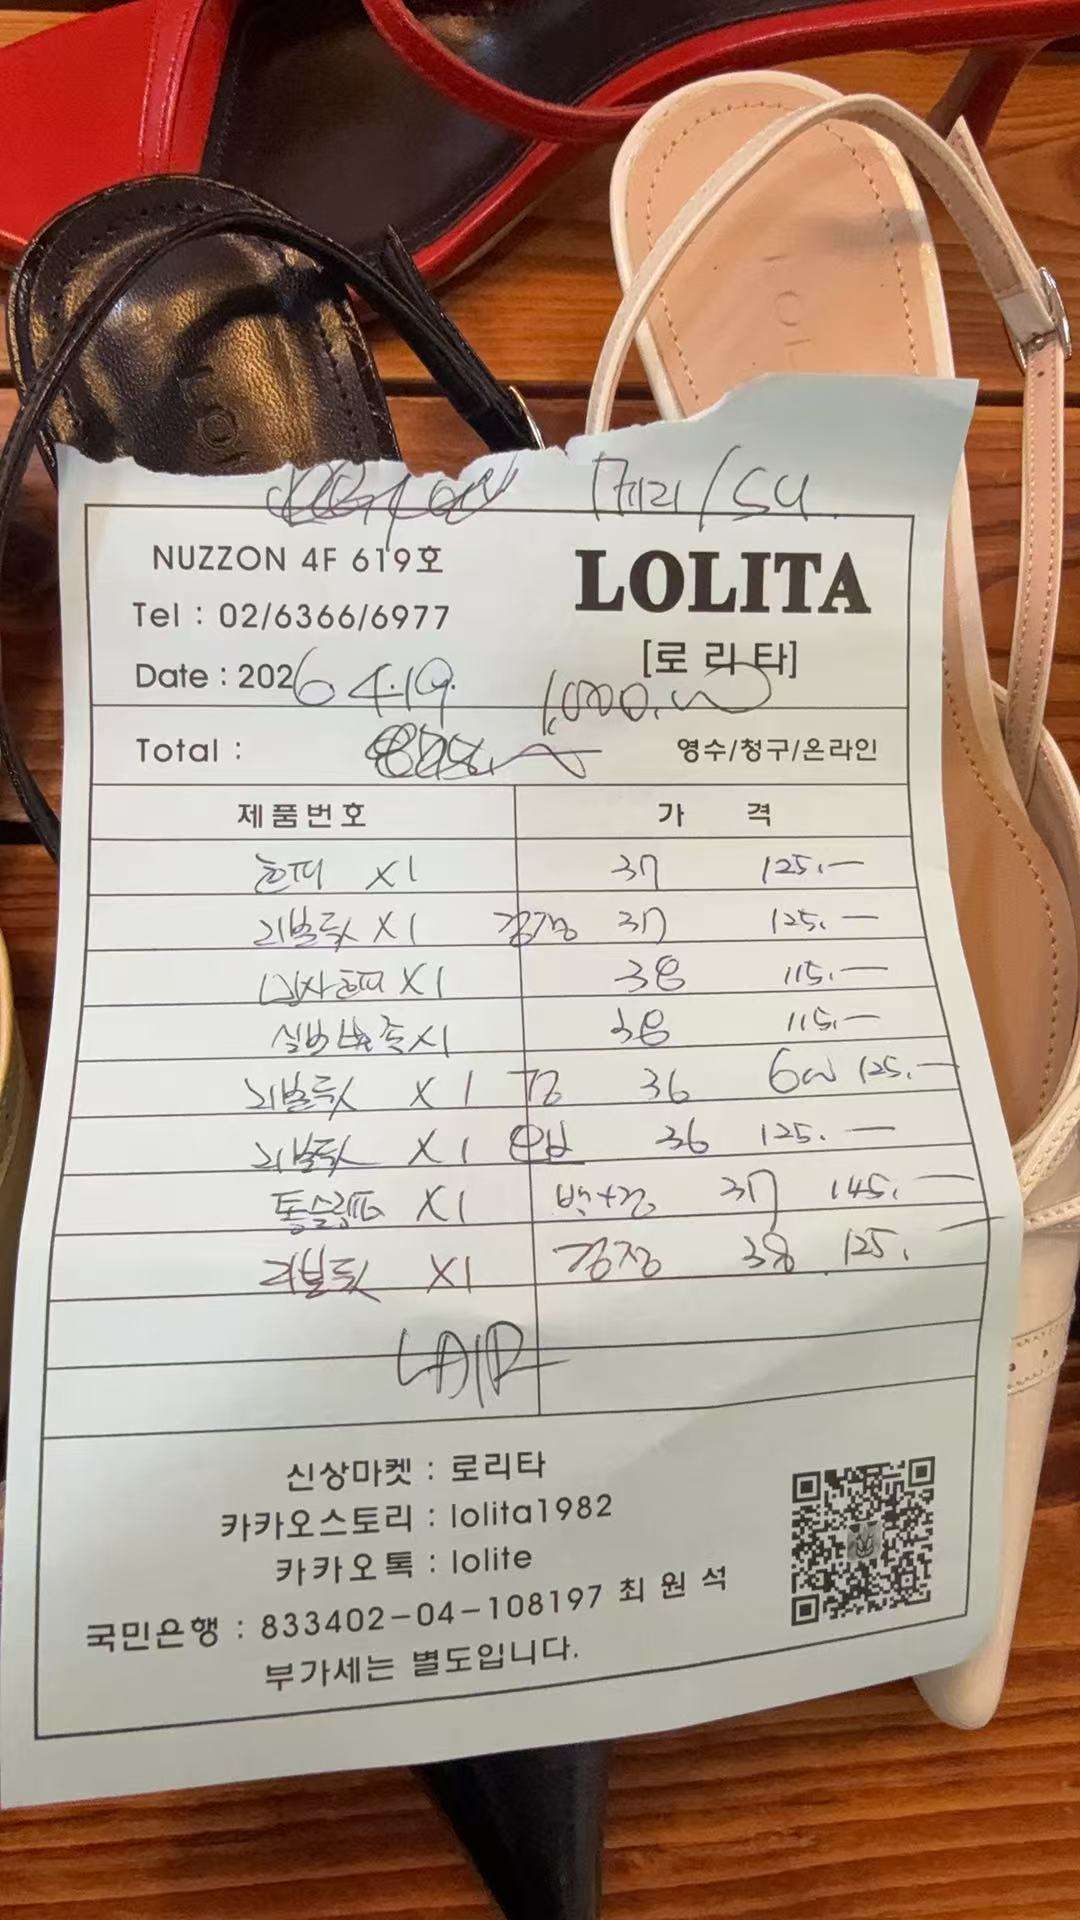 메리/SU
NUZZON 4F 619호
LOLITA
Tel : 02/6366/6977
[로리타]
Date : 2026 4.19.
1,000.
Total :
영수/청구/온라인
제품번호 가 격
X1 37 125.—
리본 X1 검정 37 125.—
X1 38 115.—
실버 X1 38 115.—
리본 X1 검 36 125.—
리본 X1 36 125.—
통슬리퍼 X1 백+검 37 145.—
리본 X1 검정 38 125.—
LAIR
신상마켓 : 로리타
카카오스토리 : lolita1982
카카오톡 : lolite
국민은행 : 833402-04-108197 최원석
부가세는 별도입니다.